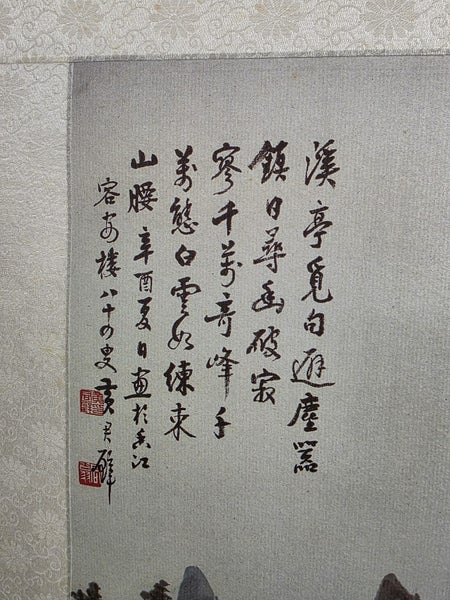 溪亭覓句避塵囂
鎮日尋幽破寂
寥千萬奇峰千
萬態白雲如練束
山腰 辛酉夏日畫於香江
容安樓八十四叟黃君璧